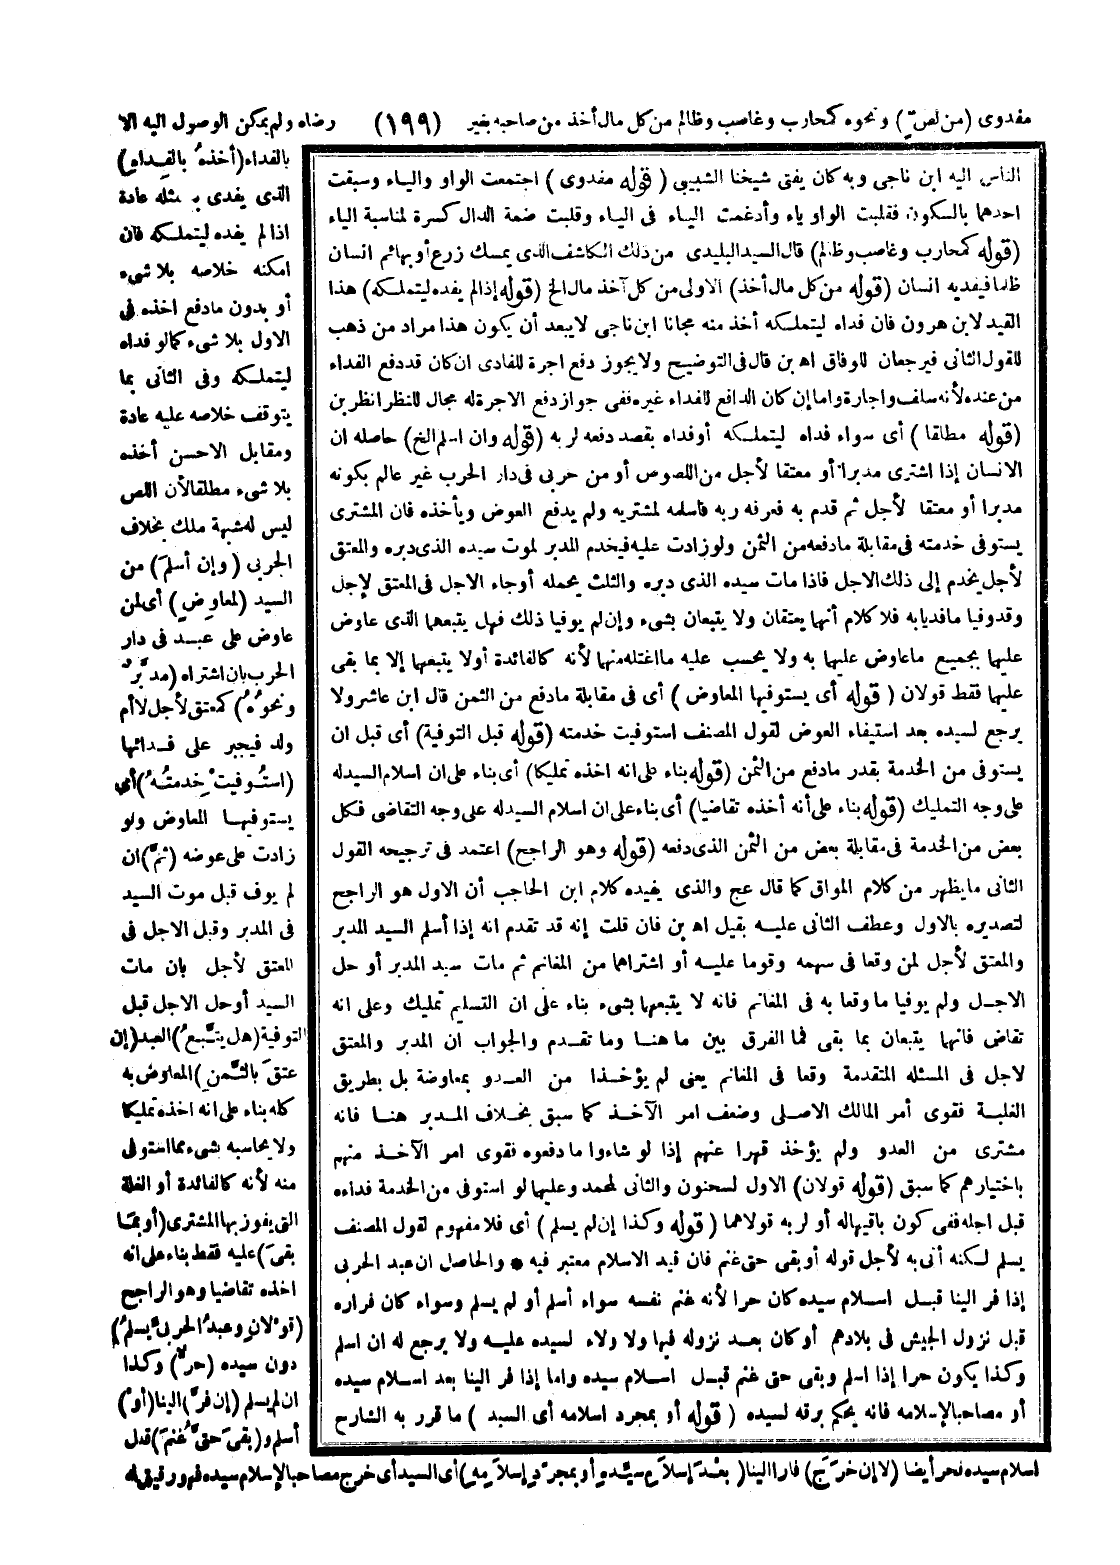 مفدوى (من لص) ونحوه كمحارب وغاصب وظالم من كل مال أخذ من صاحبه بغير (١٩٩) رضاه ولم يمكن الوصول اليه الا
بالفداء (أخذه بالفداء)
الذى يفدى به مثله عادة
اذا لم يفده ليتملكه فان
امكنه خلاصه بلا شىء
أو بدون مادفع اخذه فى
الاول بلا شىء كمالو فداه
ليتملكه وفى الثانى بما
يتوقف خلاصه عليه عادة
ومقابل الاحسن أخذه
بلا شىء مطلقا لأن اللص
ليس له شبهة ملك بخلاف
الحربى (وإن أسلم) من
السيد (لمعاوض) أى لمن
عاوض على عبد فى دار
الحرب بان اشتراه (مدبر
ونحوه) كمعتق لأجل لا أم
ولد فيجبر على فدائها
(استوفيت خدمته) أى
يستوفيها المعاوض ولو
زادت على عوضه (ثم) ان
لم يوف قبل موت السيد
فى المدبر وقبل الاجل فى
المعتق لأجل بان مات
السيد أو حل الاجل قبل
التوفية (هل يتبع) العبد (إن
عتق بالثمن) المعاوض به
كله بناء على انه اخذه تمليكا
ولا يحاسبه بشىء مما استوفى
منه لأنه كالفائدة أو الغلة
التى يفوز بها المشترى (أو بما
بقى) عليه فقط بناء على انه
اخذه تقاضيا وهو الراجح
(قولان وعبد الحربى يسلم)
دون سيده (حر) وكذا
ان لم يسلم (إن فر) الينا (أو)
أسلم و (بقى حتى غنم) قبل
الناس اليه ابن ناجى وبه كان يفتى شيخنا الشبيبى (قوله مفدوى) اجتمعت الواو والياء وسبقت
احدهما بالسكون فقلبت الواو ياء وأدغمت الياء فى الياء وقلبت ضمة الدال كسرة لمناسبة الياء
(قوله كمحارب وغاصب وظالم) قال السيد البليدى من ذلك الكاشف الذى يمسك زرع أو بهائم انسان
ظلما فيفديه انسان (قوله من كل مال أخذ) الاولى من كل آخذ مال الخ (قوله إذا لم يفده ليتملكه) هذا
القيد لابن هرون فان فداه ليتملكه أخذ منه مجانا ابن ناجى لا يبعد أن يكون هذا مراد من ذهب
للقول الثانى فيرجعان للوفاق اه بن قال فى التوضيح ولا يجوز دفع اجرة للفادى ان كان قد دفع الفداء
من عنده لأنه سلف واجارة واما إن كان الدافع للفداء غيره ففى جواز دفع الاجرة له مجال للنظر انظر بن
(قوله مطلقا) أى سواء فداه ليتملكه أو فداه بقصد دفعه لربه (قوله وان اسلم الخ) حاصله ان
الانسان إذا اشترى مدبرا أو معتقا لأجل من اللصوص أو من حربى فى دار الحرب غير عالم بكونه
مدبرا أو معتقا لأجل ثم قدم به فعرفه ربه فاسلمه لمشتريه ولم يدفع العوض ويأخذه فان المشترى
يستوفى خدمته فى مقابلة مادفعه من الثمن ولو زادت عليه فيخدم المدبر لموت سيده الذى دبره والمعتق
لأجل يخدم إلى ذلك الاجل فاذا مات سيده الذى دبره والثلث يحمله أو جاء الاجل فى المعتق لأجل
وقد وفيا مافديا به فلا كلام أنهما يعتقان ولا يتبعان بشىء وإن لم يوفيا ذلك فهل يتبعهما الذى عاوض
عليهما بجميع ماعاوض عليهما به ولا يحسب عليه مااغتله منهما لأنه كالفائدة أولا يتبعهما إلا بما بقى
عليهما فقط قولان (قوله أى يستوفيها المعاوض) أى فى مقابلة مادفع من الثمن قال ابن عاشر ولا
يرجع لسيده بعد استيفاء العوض لقول المصنف استوفيت خدمته (قوله قبل التوفية) أى قبل ان
يستوفى من الخدمة بقدر مادفع من الثمن (قوله بناء على انه اخذه تمليكا) أى بناء على ان اسلام السيد له
على وجه التمليك (قوله بناء على أنه أخذه تقاضيا) أى بناء على ان اسلام السيد له على وجه التقاضى فكل
بعض من الخدمة فى مقابلة بعض من الثمن الذى دفعه (قوله وهو الراجح) اعتمد فى ترجيحه القول
الثانى مايظهر من كلام المواق كما قال عج والذى يفيده كلام ابن الحاجب أن الاول هو الراجح
لتصديره بالاول وعطف الثانى عليه بقيل اه بن فان قلت إنه قد تقدم انه إذا أسلم السيد المدبر
والمعتق لأجل لمن وقعا فى سهمه وقوما عليه أو اشتراهما من المغانم ثم مات سيد المدبر أو حل
الاجل ولم يوفيا ما وقعا به فى المغانم فانه لا يتبعهما بشىء بناء على ان التسليم تمليك وعلى انه
تقاض فانهما يتبعان بما بقى فما الفرق بين ما هنا وما تقدم والجواب ان المدبر والمعتق
لاجل فى المسئله المتقدمة وقعا فى المغانم يعنى لم يؤخذا من العدو بمعاوضة بل بطريق
الغلبة فقوى أمر المالك الاصلى وضعف امر الآخذ كما سبق بخلاف المدبر هنا فانه
مشترى من العدو ولم يؤخذ قهرا عنهم إذا لو شاءوا ما دفعوه فقوى امر الآخذ منهم
باختيارهم كما سبق (قوله قولان) الاول لسحنون والثانى لمحمد وعليهما لو استوفى من الخدمة فداءه
قبل اجله ففى كون باقيها له أو لربه قولاهما (قوله وكذا إن لم يسلم) أى فلا مفهوم لقول المصنف
يسلم لكنه أتى به لأجل قوله أو بقى حتى غنم فان قيد الاسلام معتبر فيه * والحاصل ان عبد الحربى
إذا فر الينا قبل اسلام سيده كان حرا لأنه غنم نفسه سواء أسلم أو لم يسلم وسواء كان فراره
قبل نزول الجيش فى بلادهم أو كان بعد نزوله فيها ولا ولاء لسيده عليه ولا يرجع له ان اسلم
وكذا يكون حرا إذا اسلم وبقى حتى غنم قبل اسلام سيده واما إذا فر الينا بعد اسلام سيده
أو مصاحبا لإسلامه فانه يحكم برقه لسيده (قوله أو بمجرد اسلامه أى السيد) ما قرر به الشارح
اسلام سيده فحر أيضا (لا إن خرج) فارا الينا (بعد إسلام سيده أو بمجرد إسلامه) أى السيد أى خرج مصاحبا لإسلام سيده فهو رقيق له